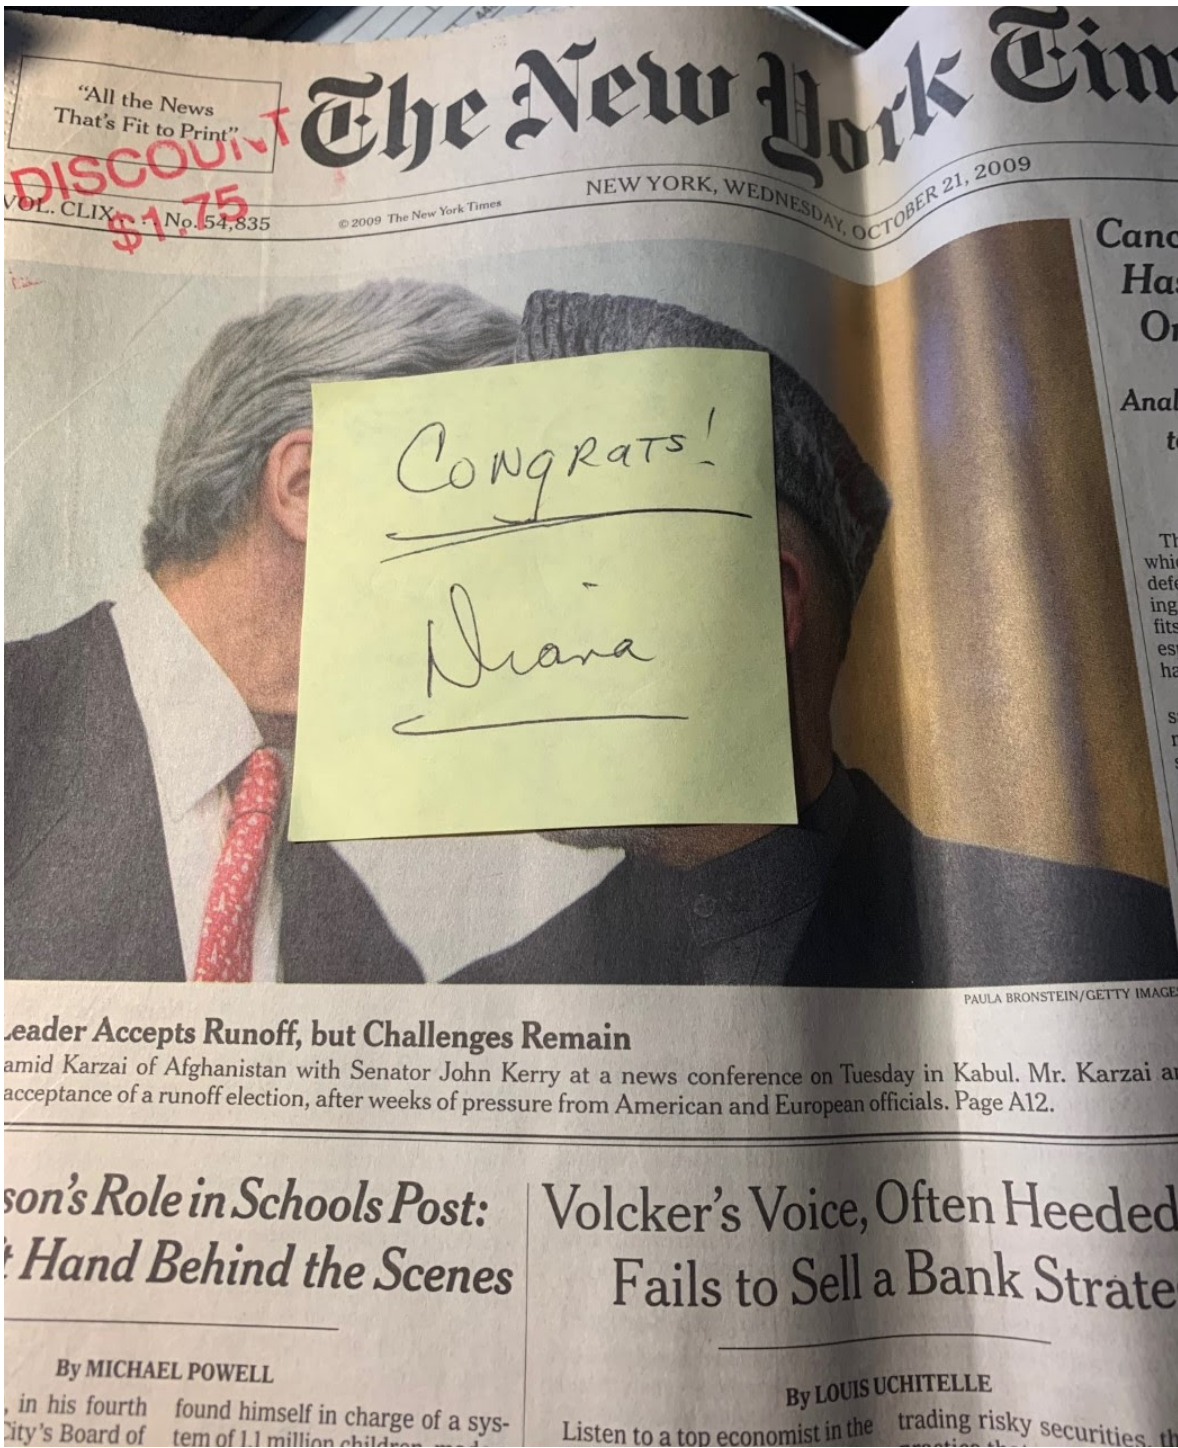 "All the News
That's Fit to Print"
DISCOUNT
$1.75
The New York Tim
VOL. CLIX . . . No. 54,835
© 2009 The New York Times
NEW YORK, WEDNESDAY, OCTOBER 21, 2009
Canc
Has
On
Anal
to
Th
whic
defe
ing
fits
esp
ha
Congrats!
Diana
PAULA BRONSTEIN/GETTY IMAGES
Leader Accepts Runoff, but Challenges Remain
amid Karzai of Afghanistan with Senator John Kerry at a news conference on Tuesday in Kabul. Mr. Karzai an
acceptance of a runoff election, after weeks of pressure from American and European officials. Page A12.
son's Role in Schools Post:
t Hand Behind the Scenes
Volcker's Voice, Often Heeded
Fails to Sell a Bank Strate
By MICHAEL POWELL
, in his fourth
City's Board of
found himself in charge of a sys-
tem of 1.1 million children
By LOUIS UCHITELLE
Listen to a top economist in the
trading risky securities, th